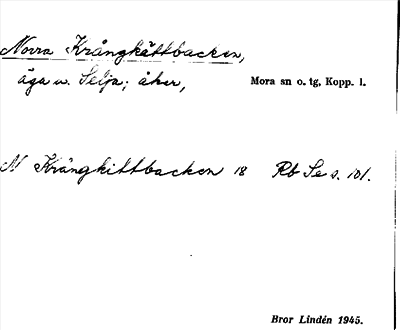 Norra Krångkättbacken,
äga u. Selja; åker,
Mora sn o. tg, Kopp. l.
N Krångkittbacken 18 Rb Se s. 101.
Bror Lindén 1945.